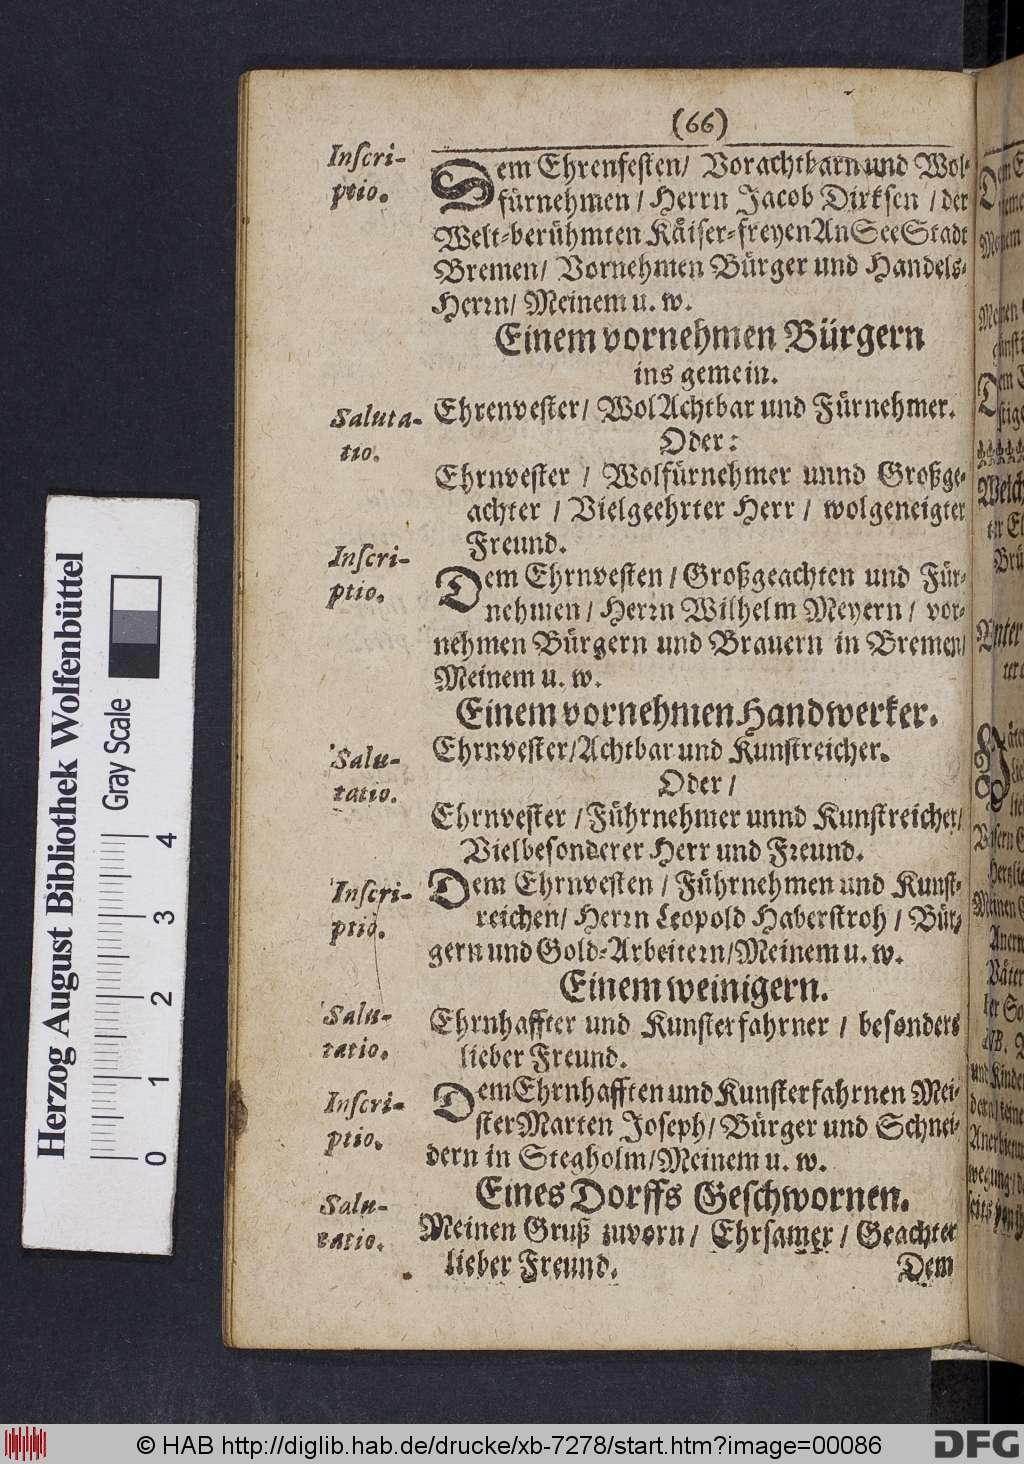 (66)
Inſcri-
ptio.
Dem Ehrenfeſten/ Vorachtbarn und Wol-
fürnehmen / Herrn Jacob Dirkſen / der
Welt-berühmten Käiſer-freyen An See Stadt
Bremen/ Vornehmen Bürger und Handels-
Herrn/ Meinem u. w.
Einem vornehmen Bürgern
ins gemein.
Saluta-
tio.
Ehrenveſter/ WolAchtbar und Fürnehmer.
Oder:
Ehrnveſter / Wolfürnehmer unnd Großge-
achter / Vielgeehrter Herr / wolgeneigter
Freund.
Inſcri-
ptio.
Dem Ehrnveſten / Großgeachten und Für-
nehmen / Herrn Wilhelm Meyern / vor-
nehmen Bürgern und Brauern in Bremen/
Meinem u. w.
Einem vornehmen Handwerker.
Salu-
tatio.
Ehrnveſter/Achtbar und Kunſtreicher.
Oder /
Ehrnveſter / Führnehmer unnd Kunſtreicher/
Vielbeſonderer Herr und Freund.
Inſcri-
ptio.
Dem Ehrnveſten / Führnehmen und Kunſt-
reichen/ Herrn Leopold Haberſtroh / Bür-
gern und Gold-Arbeitern/Meinem u. w.
Einem weinigern.
Salu-
tatio.
Ehrnhaffter und Kunſterfahrner / beſonders
lieber Freund.
Inſcri-
ptio.
Dem Ehrnhafften und Kunſterfahrnen Mei-
ſter Marten Joſeph/ Bürger und Schnei-
dern in Stegholm/Meinem u. w.
Eines Dorffs Geſchwornen.
Salu-
tatio.
Meinen Gruß zuvorn / Ehrſamer / Geachter
lieber Freund.
Dem
Herzog August Bibliothek Wolfenbüttel
Gray Scale
0 1 2 3 4
© HAB http://diglib.hab.de/drucke/xb-7278/start.htm?image=00086
DFG